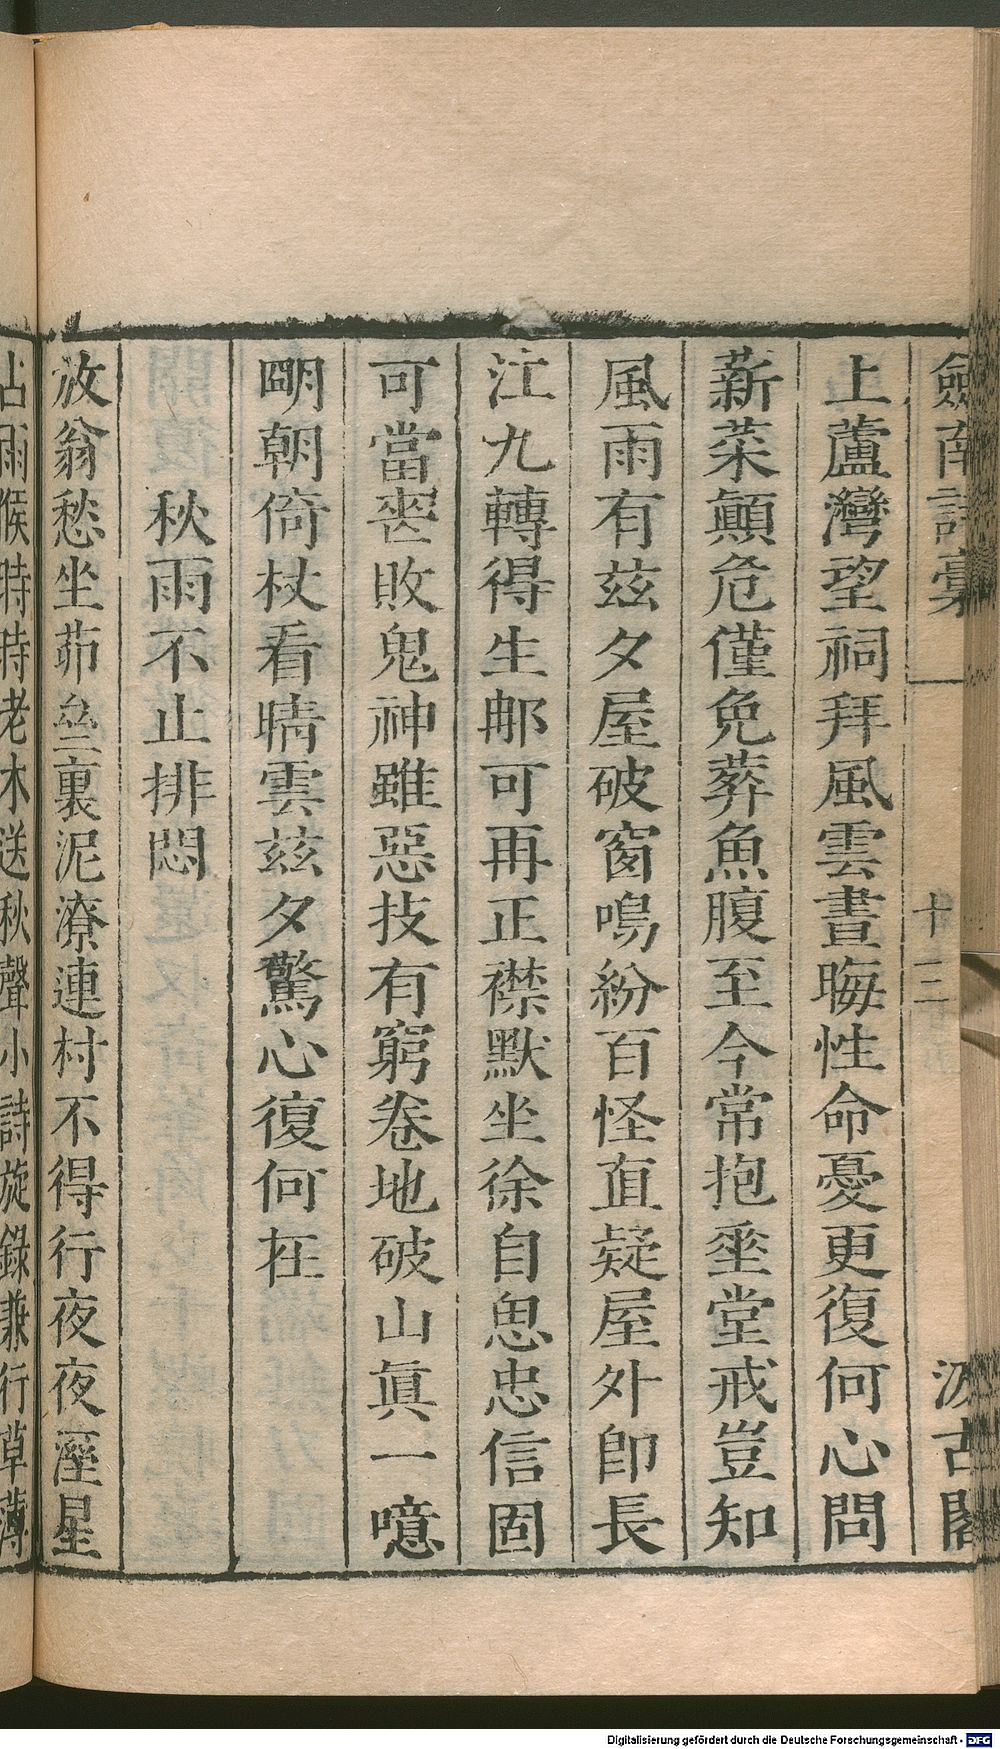 劍南詩稾 十二 汲古閣
上蘆灣望祠拜風雲晝晦性命憂更復何心問
薪菜顚危僅免葬魚腹至今常抱垂堂戒豈知
風雨有茲夕屋破窗鳴紛百怪直疑屋外卽長
江九轉得生郍可再正襟默坐徐自思忠信固
可當喪敗鬼神雖惡技有窮卷地破山眞一噫
朙朝倚杖看晴雲茲夕驚心復何在
秋雨不止排悶
放翁愁坐茆亝裏泥潦連村不得行夜夜夜溼星
占雨候時時老木送秋聲小詩旋錄兼行草薄
Digitalisierung gefördert durch die Deutsche Forschungsgemeinschaft - DFG